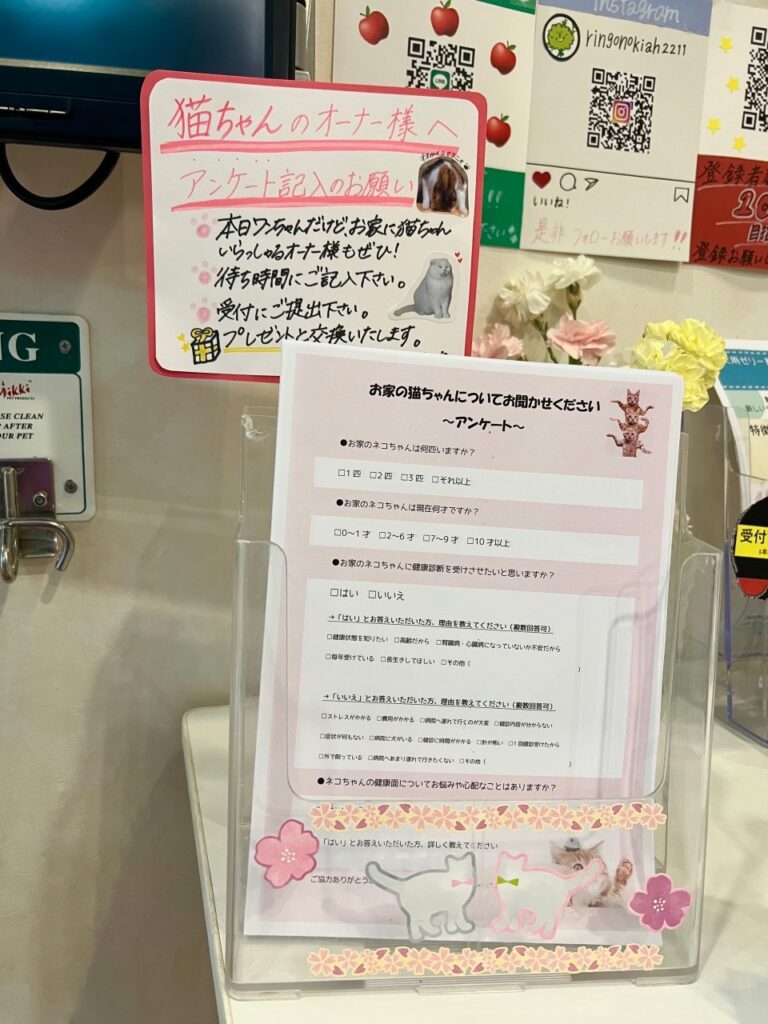 猫ちゃんのオーナー様へ
アンケート記入のお願い
本日ワンちゃんだけど、お家に猫ちゃん
いらっしゃるオーナー様もぜひ!
待ち時間にご記入下さい。
受付にご提出下さい。
プレゼントと交換いたします。
LINE
Instagram
ringonokiah2211
いいね!
是非フォローお願いします!!
登録者
目指
登録お願いし
NG
Mikki
PET PRODUCTS
SE CLEAN
P AFTER
OUR PET
お家の猫ちゃんについてお聞かせください
~アンケート~
●お家のネコちゃんは何匹いますか?
□1匹 □2匹 □3匹 □それ以上
●お家のネコちゃんは現在何才ですか?
□0~1才 □2~6才 □7~9才 □10才以上
●お家のネコちゃんに健康診断を受けさせたいと思いますか?
□はい □いいえ
→「はい」とお答えいただいた方、理由を教えてください(複数回答可)
□健康状態を知りたい □高齢だから □腎臓病・心臓病になっていないか不安だから
□毎年受けている □長生きしてほしい □その他( )
→「いいえ」とお答えいただいた方、理由を教えてください(複数回答可)
□ストレスがかかる □費用がかかる □病院へ連れて行くのが大変 □健診内容が分からない
□症状が何もない □病院に犬がいる □健診に時間がかかる □針が怖い □1回健診受けたから
□外で飼っている □病院へあまり連れて行きたくない □その他( )
●ネコちゃんの健康面についてお悩みや心配なことはありますか?
「はい」とお答えいただいた方、詳しく教えてください
ご協力ありがとう
用ゼリー
特徴
受付